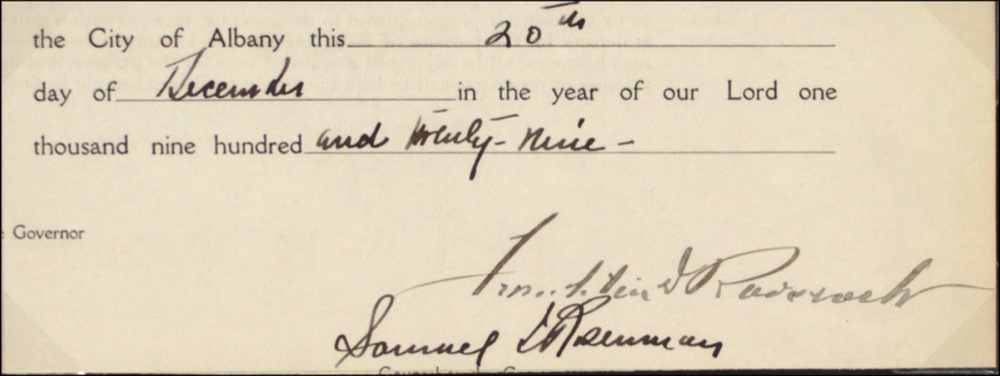 the City of Albany this 20th
day of December in the year of our Lord one
thousand nine hundred and twenty-nine-
Governor
Franklin D Roosevelt
Samuel I Rosenman